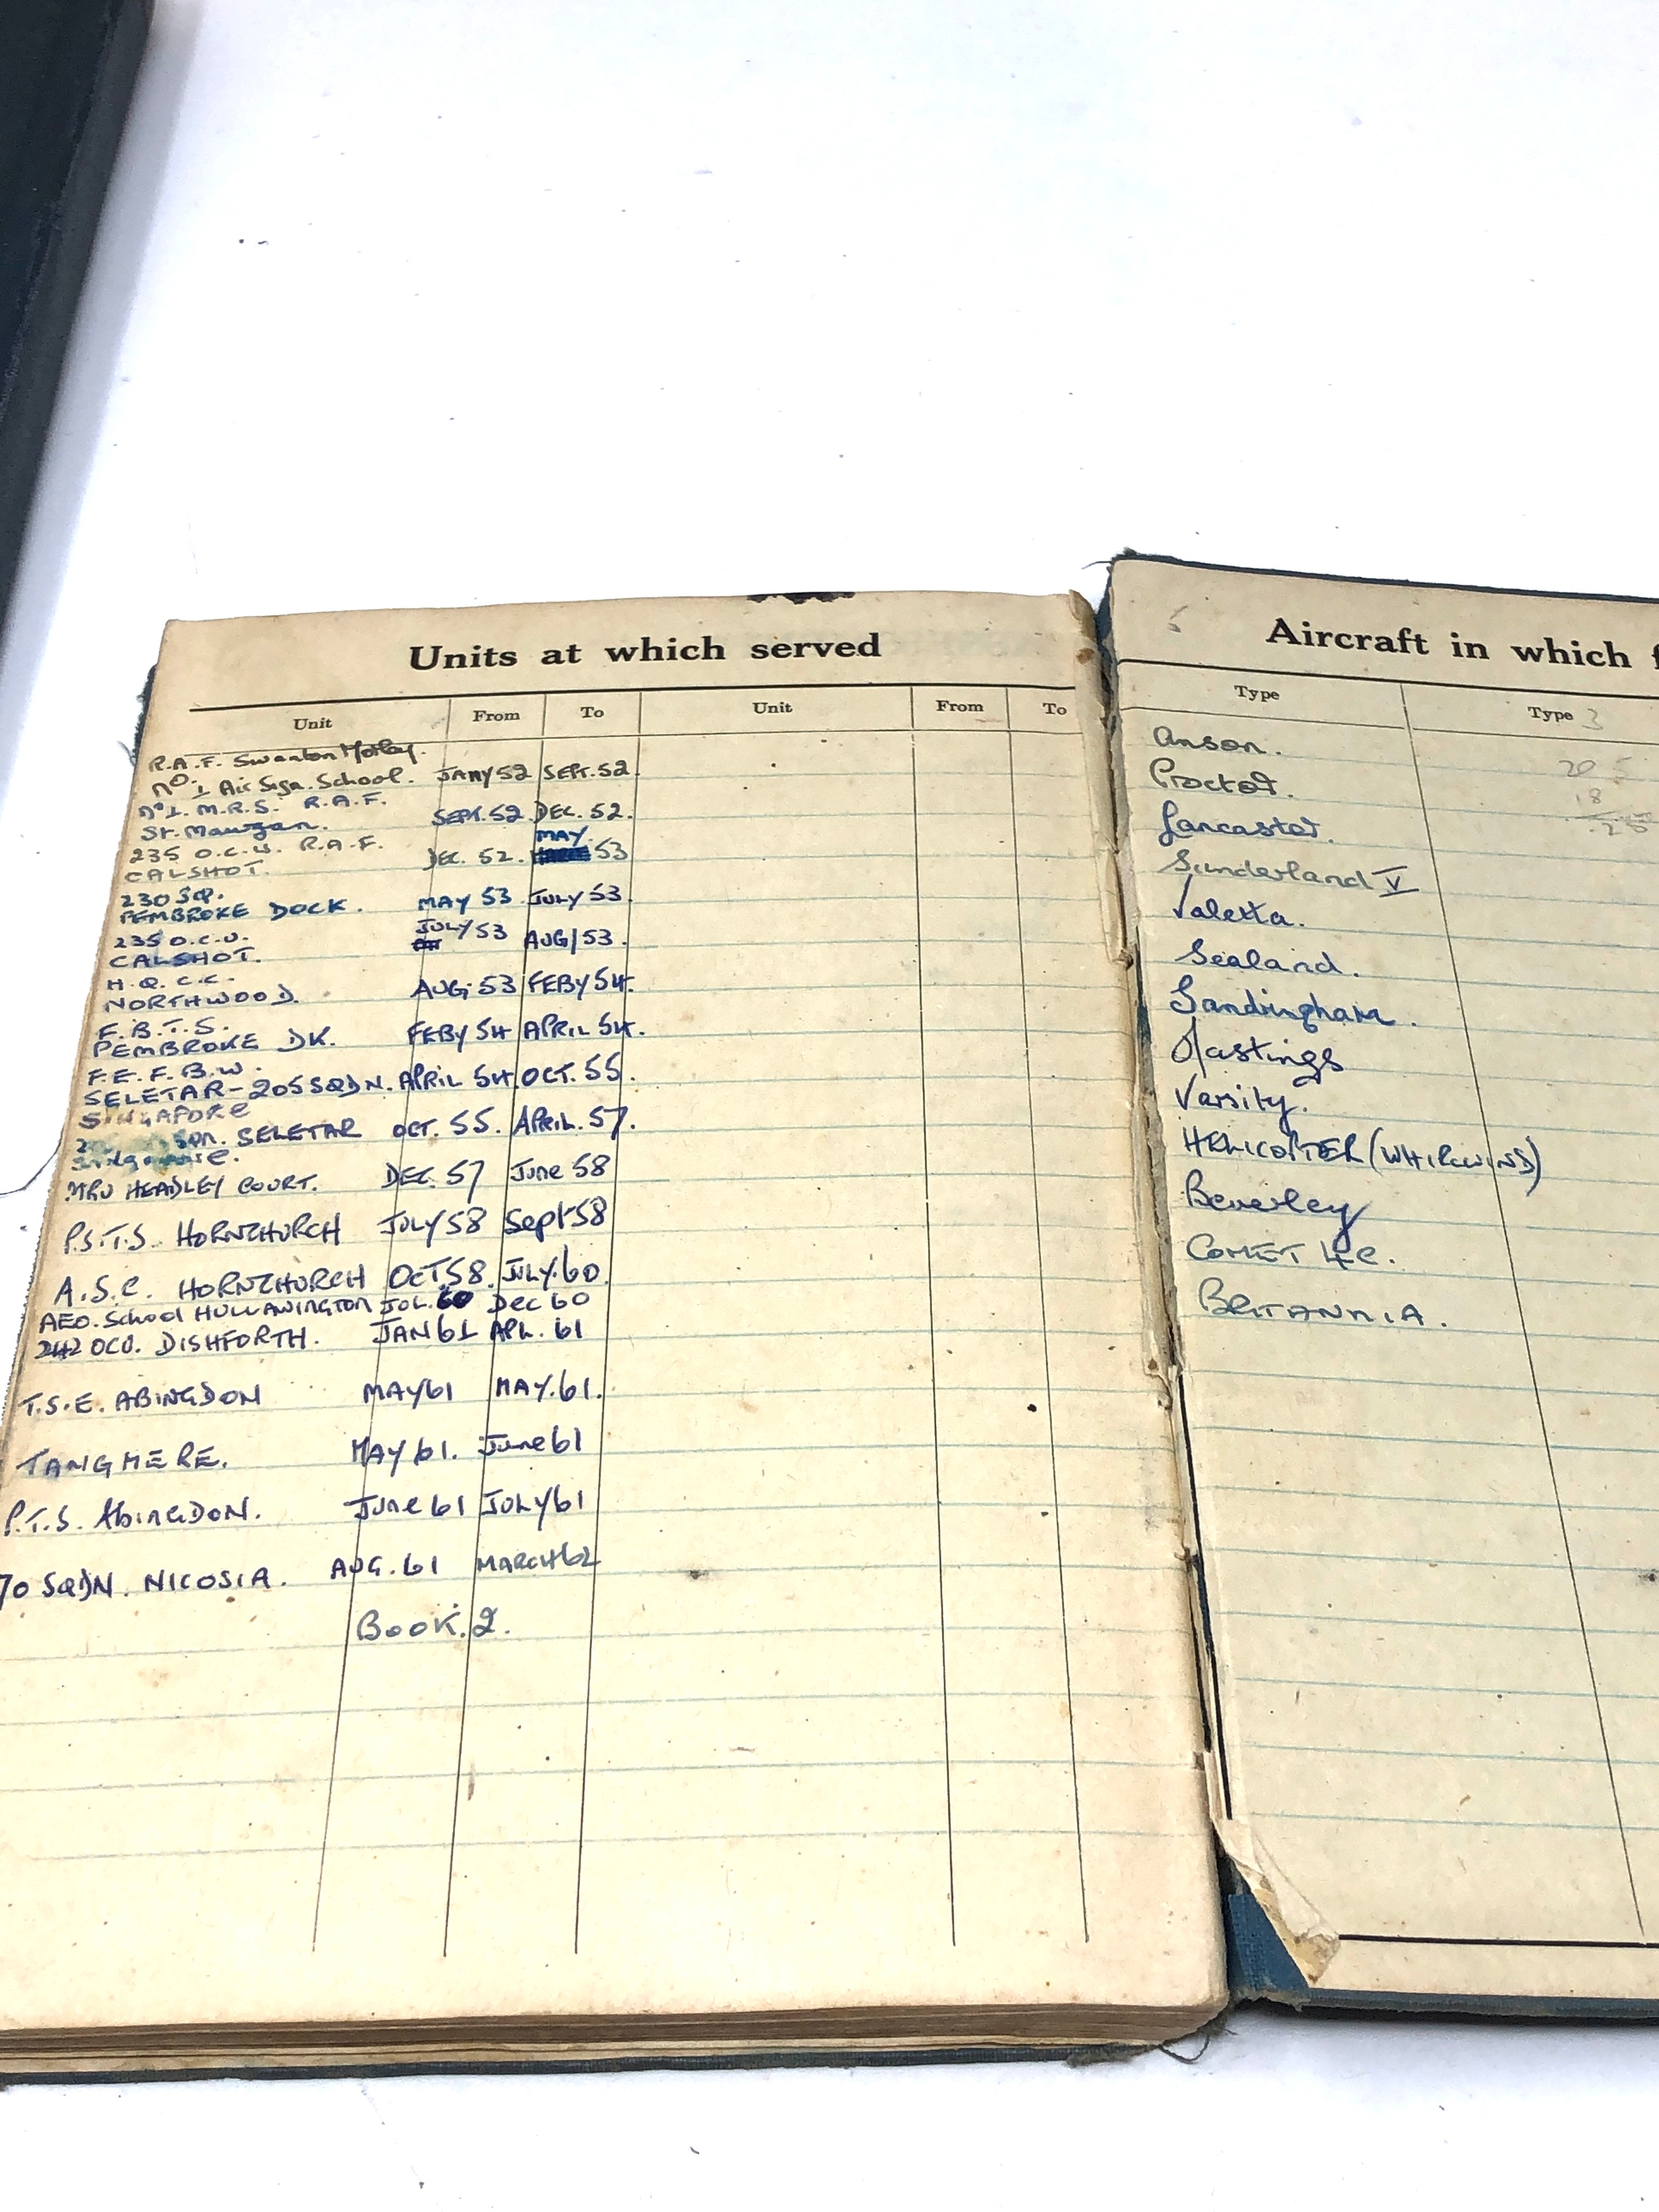 Units at which served
Unit From To Unit From To
R.A.F. Swanton Morley.
No. 1 Air Sigs. School. JANY 52 SEPT. 52
No 1. M.R.S. R.A.F.
St. Mawgan. SEPT. 52 DEC. 52.
235 O.C.U. R.A.F. MAY
CALSHOT. DEC. 52. 53
230 SQ.
PEMBROKE DOCK. MAY 53 JULY 53
235 O.C.U. JULY 53
CALSHOT. AUG/53.
H.Q. C.C.
NORTHWOOD. AUG. 53 FEBY 54.
F.B.T.S.
PEMBROKE DK. FEBY 54 APRIL 54.
F.E.F.B.W.
SELETAR - 205 SQDN. APRIL 54 OCT. 55.
SINGAPORE
SELETAR OCT. 55. APRIL. 57.
MRU HEADLEY COURT. DEC. 57 June 58
P.S.T.S. HORNCHURCH JULY 58 Sept 58
A.S.C. HORNCHURCH OCT. 58. JULY. 60.
AEO. School HULLAVINGTON JUL. 60 Dec 60
242 OCU. DISHFORTH. JAN 61 APL. 61
T.S.E. ABINGDON MAY 61 MAY. 61.
TANGMERE. MAY 61. June 61
P.T.S. ABINGDON. June 61 JULY 61
70 SQDN. NICOSIA. AUG. 61 MARCH 62
BOOK. 2.
Aircraft in which
Type Type 3
Anson.
Proctor.
Lancaster.
Sunderland V
Valetta.
Sealand.
Sandringham.
Hastings
Varsity.
HELICOPTER (WHIRLWIND)
Beverley
COMET 4C.
BRITANNIA.